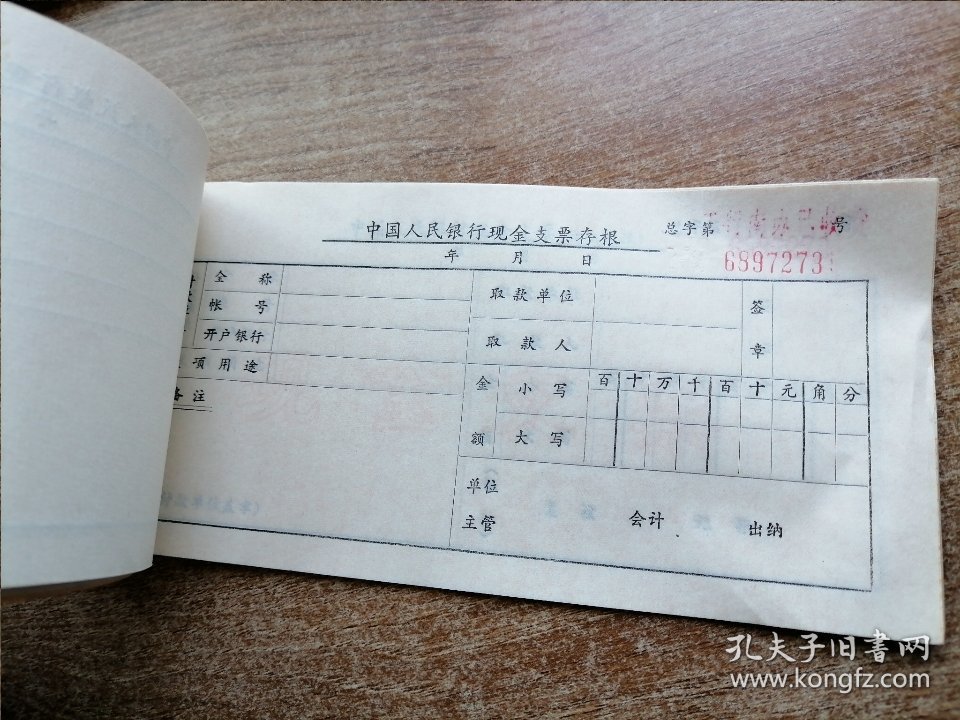 中国人民银行现金支票存根
总字第 号
6897273
年 月 日
全称
帐号
开户银行
项用途
备注
取款单位
取款人
签章
金额
小写
百 十 万 千 百 十 元 角 分
大写
单位主管
会计
出纳
孔夫子旧书网
www.kongfz.com